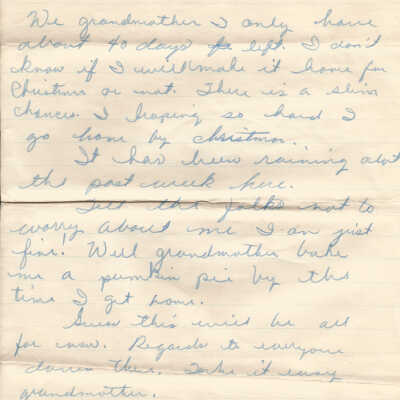 We grandmother I only have
about 40 days left. I don't
know if I will make it home for
Christmas or not. There is a slim
chances. I hoping so hard I
go home by christmas.
It has been raining alot
the past week here.
Tell the folks not to
worry about me I am just
fine! Well grandmother bake
me a pumkin pie by the
time I get home.
Guess this will be all
for now. Regards to everyone
down there. Take it easy
grandmother.